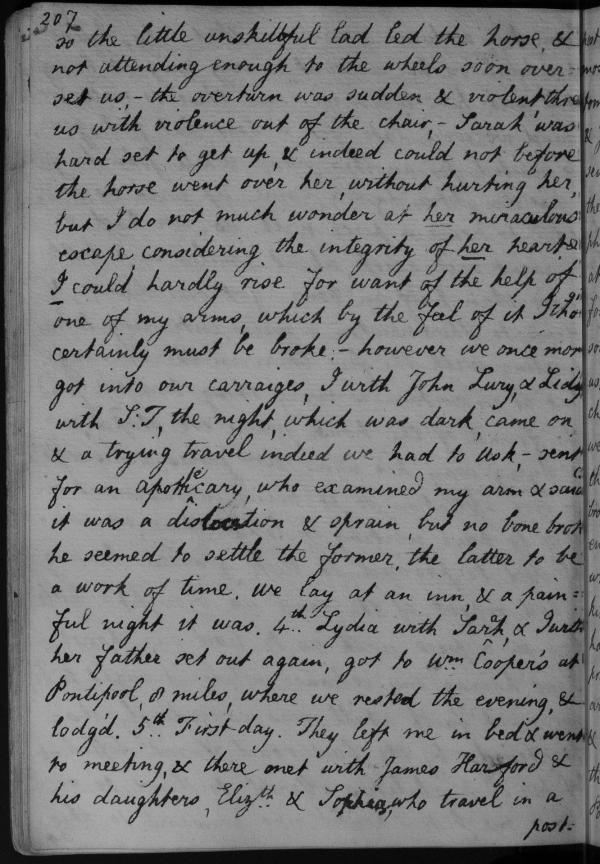 207
so the little unskillful lad led the horse, &
not attending enough to the wheels soon over=
set us, - the overturn was sudden & violent thre
us with violence out of the chair, - Sarah was
hard set to get up, & indeed could not before
the horse went over her, without hurting her,
but I do not much wonder at her miraculous
escape, considering the integrity of her heart &
I could hardly rise for want of the help of
one of my arms, which by the feel of it I tho't
certainly must be broke, - however we once mor
got into our carraiges, I with John Lury, & Lidy
with S: T, the night, which was dark, came on
& a trying travel indeed we had to Usk, - sent
for an apothecary, who examined my arm & said
it was a dislocation & sprain, but no bone brok
he seemed to settle the former, the latter to be
a work of time. we lay at an inn, & a pain=
ful night it was. 4th.. Lydia with Sarh, & I with
her father set out again, got to Wm Cooper's at
Pontipool, 8 miles, where we rested the evening, &
lodg'd. 5th. First day. They left me in bed & went
to meeting, & there met with James Harford &
his daughters, Elizth & Sophia, who travel in a
post=